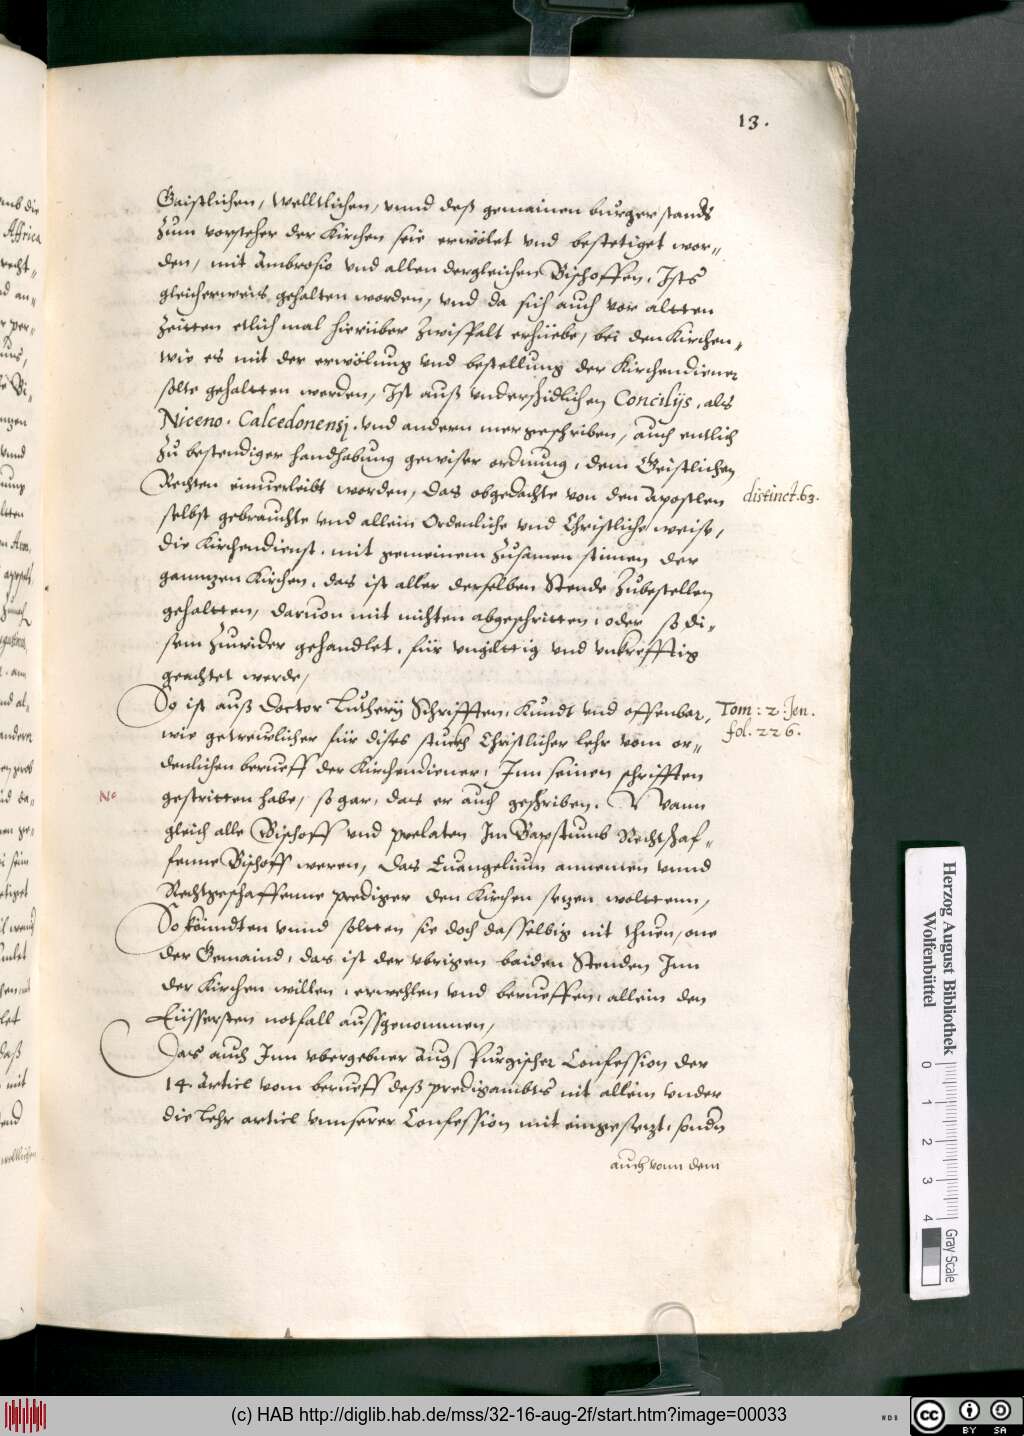 13.
Gaistlichen, Welltlichen, vnnd deß gemainen burger stands
Zum vorsteher der Kirchen seie erwölet vnd bestetiget wor-
den, mit Ambrosio vnd allen dergleichen Bischoffen, Ists
gleicherweis gehalten worden, vnd da sich auch vor altten
Zeitten etlich mal hierüber Zwispalt erhüebe, bei den Kirchen,
wie es mit der erwölung vnd bestellung der Kirchendiener
solte gehaltten werden, Ist auß vnderschidlichen Concilijs, als
Niceno. Calcedonensj. vnd andern mer geschriben, auch entlich
Zu bestendiger handhabung gewiser ordnung, dem Geistlichen
Rechten einuerleibt worden, das obgedachte von den Apostlen
distinct. 63.
selbst gebrauchte vnd allein Ordenliche vnd Christliche weise,
die Kirchendienst, mit gemeinem Zusamen stimen der
ganntzen Kirchen, das ist aller derselben Stende Zubestellen
gehaltten, daruon mit nichten abgeschritten, oder so di-
sem Zuwider gehandlet, für vngülttig vnd vnkrefftig
geachtet werde,
So ist auß Doctor Lutherij Schrifften, Kundt vnd offenbar,
Tom: 2. Jen.
fol. 226.
wie getreulicher für dises stuckh Christlicher lehr vom or-
denlichen berueff der Kirchendiener, Inn seinen schrifften
gestritten habe, so gar, das er auch geschriben. Wann
Nc
gleich alle Bischoff vnd prelaten Im Bapstumb Rechtschaf-
fenne Bischoff weren, das Euangelium annemen vnnd
Rechtgeschaffenne prediger den Kirchen setzen wolttenn,
So könndten vnnd soltten sie doch dasselbig nit thuen, one
der Gemaind, das ist der vbrigen baiden Stenden Inn
der Kirchen willen, erwehlen vnd berueffen, allein den
Eüssersten notfall aussgenommen,
Das auch Inn vbergebner Augspurgischer Confession der
14. Articl vom berueff deß predigambts nit allein vnder
die lehr articl vnnserer Confession mit eingesetzt, sondn
auch vonn dem
Herzog August Bibliothek
Wolfenbüttel
0 1 2 3 4
Gray Scale
(c) HAB http://diglib.hab.de/mss/32-16-aug-2f/start.htm?image=00033
WDB
cc BY SA